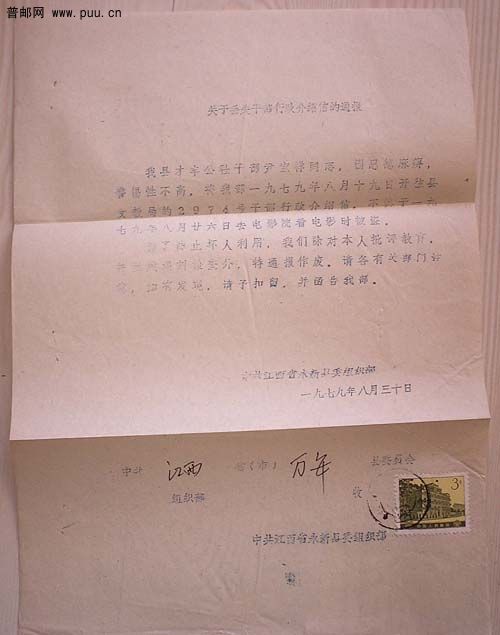 普邮网 www.puu.cn
关于丢失干部行政介绍信的通报
我县才丰公社干部尹 同志，因思想麻痹，
警惕性不高，将我部一九七九年八月十九日开往县
文教局的2974号干部行政介绍信，不 于一九
七九年八月廿六日去电影院看电影时被盗。
为了防止坏人利用，我们除对本人批评教育，
外，特通报作废。请各有关部门
，如有发现，请予扣留，并函告我部。
中共江西省永新县委组织部
一九七九年八月三十日
中共 江西 省（市） 万年 县委员会
组织部 收
中共江西省永新县委组织部